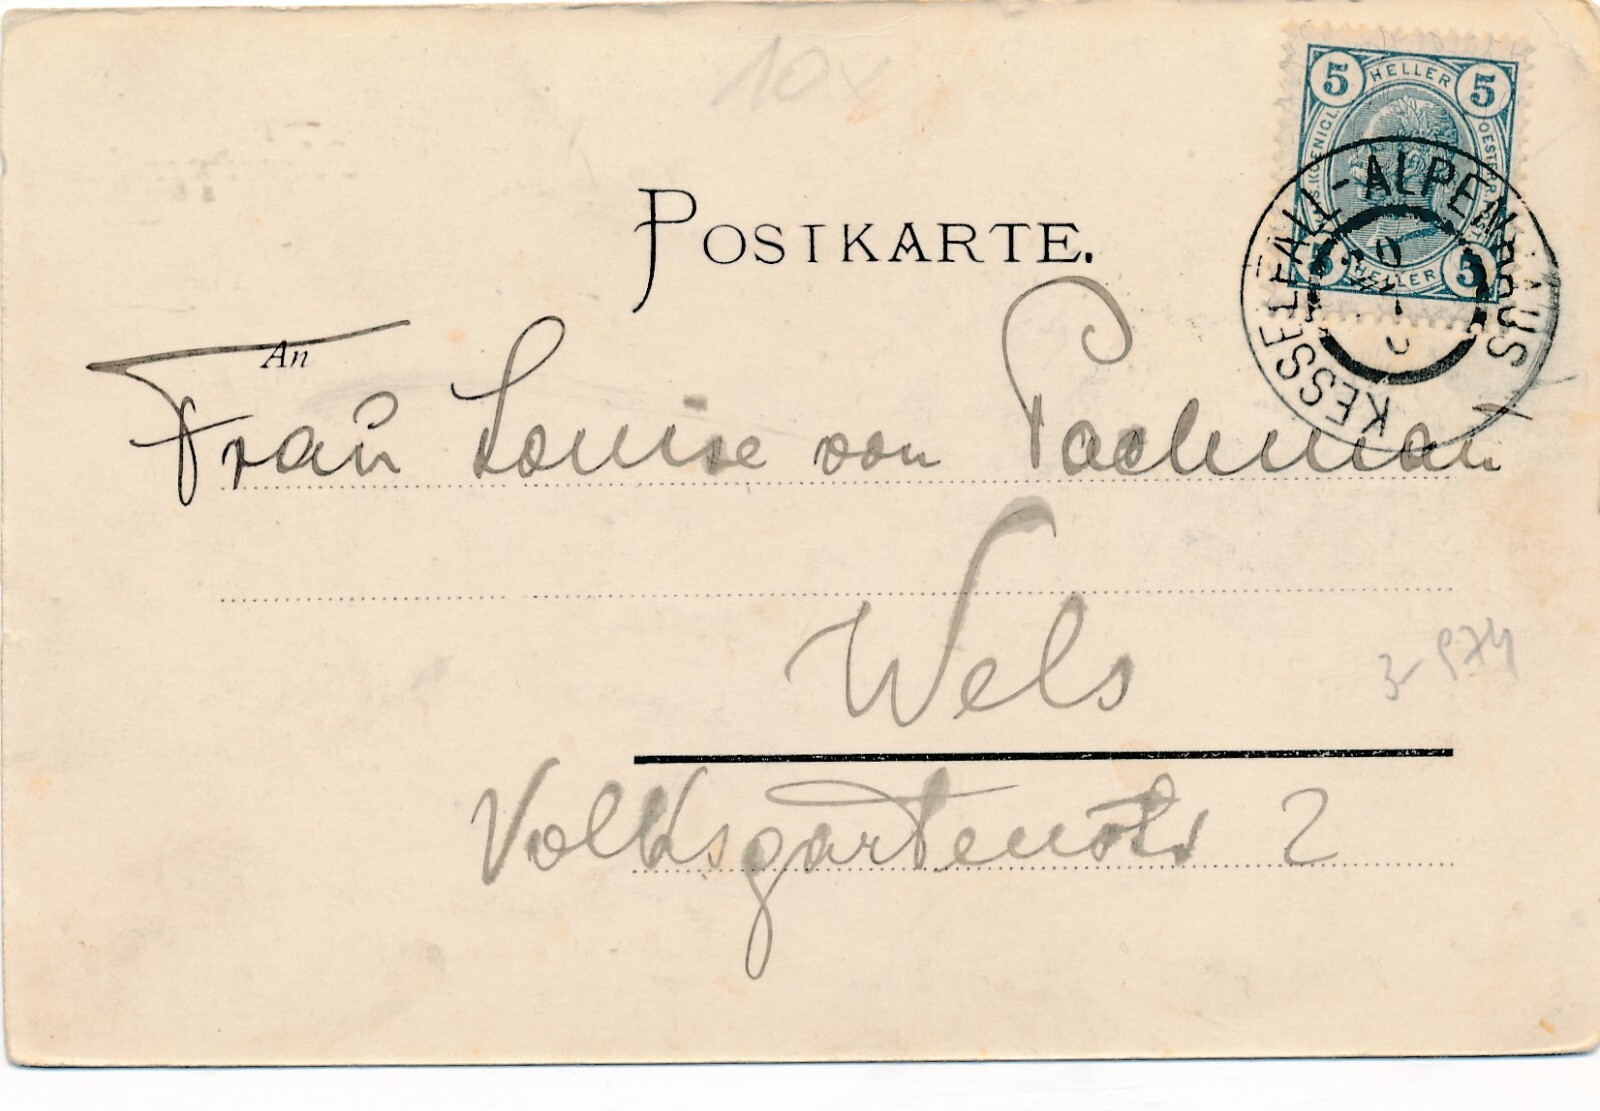 10x
5 HELLER 5
5 HELLER 5
KESSELFALL-ALPENHAUS
POSTKARTE.
An
Frau Louise von Pachman
Wels
Volksgartenstr 2